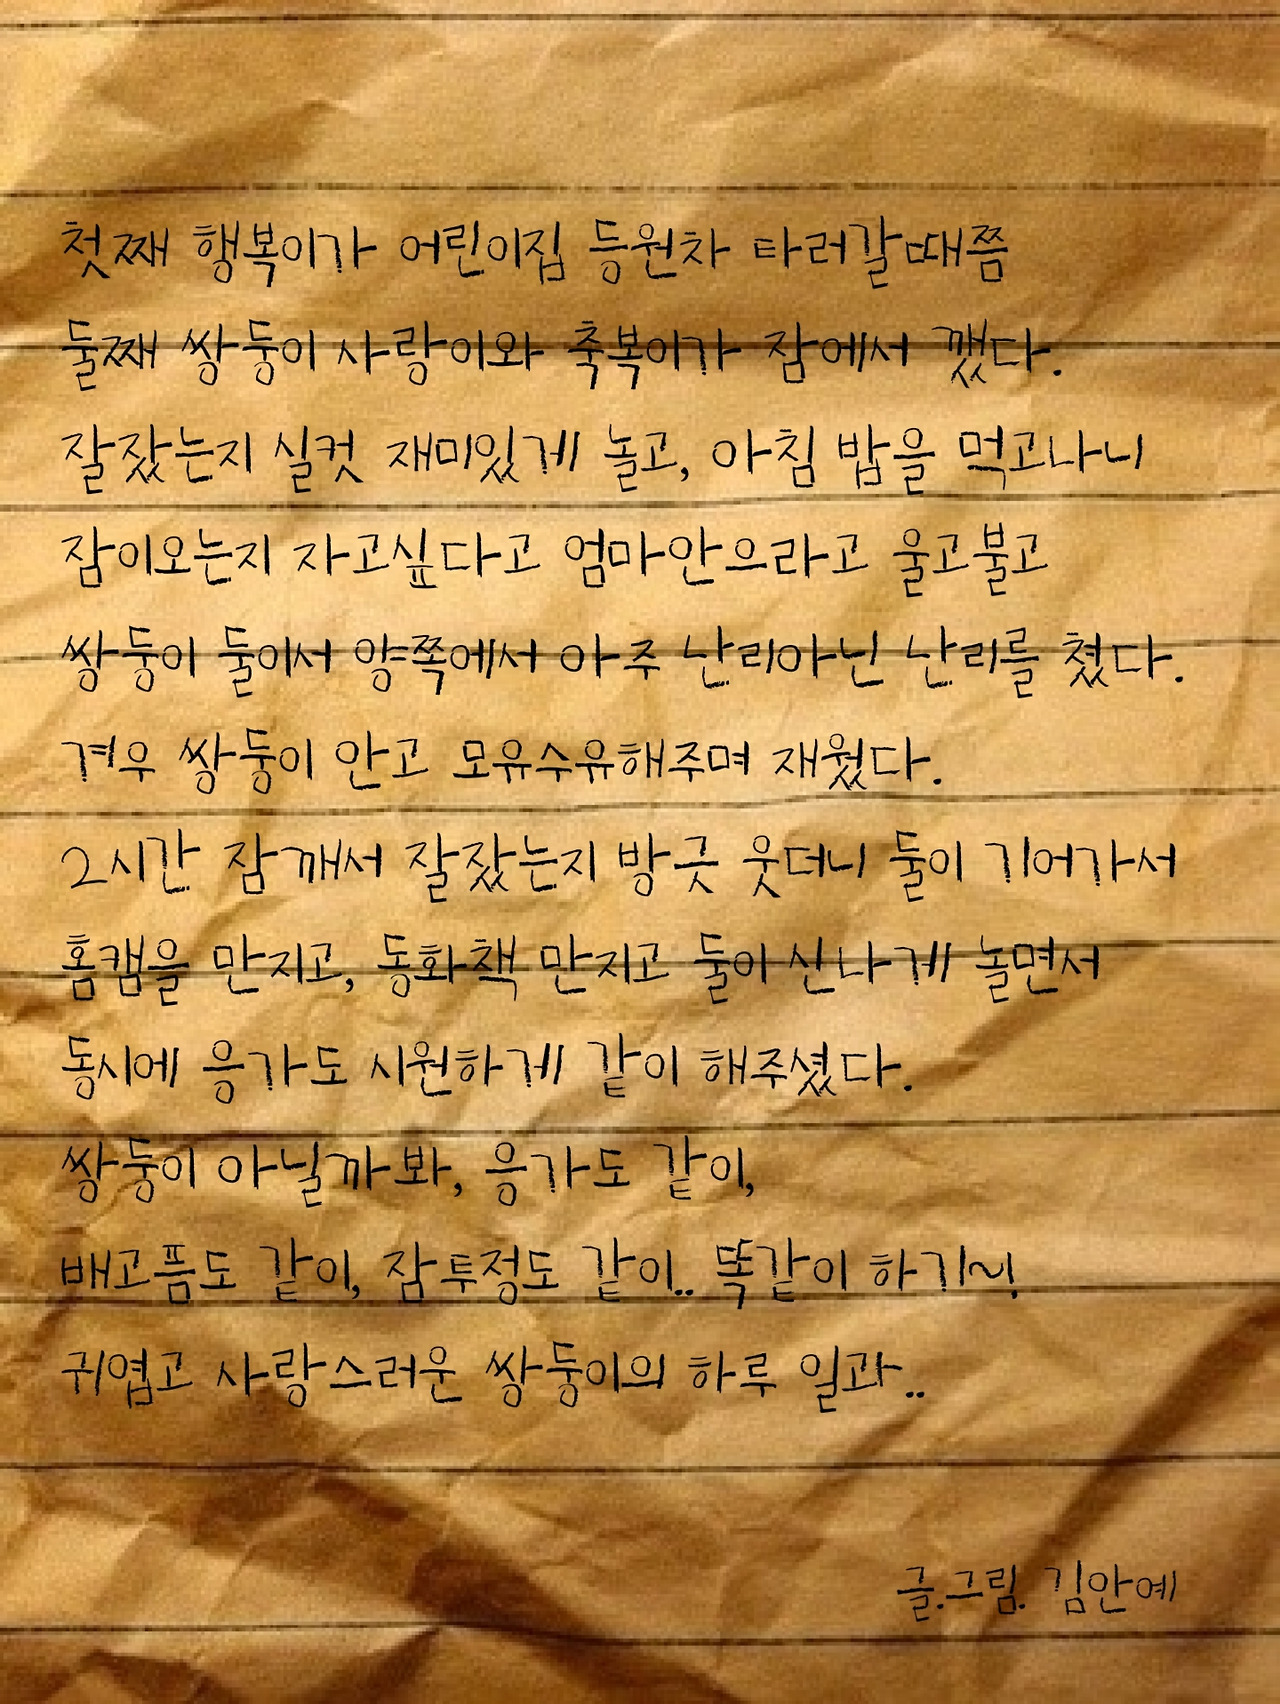 첫째 행복이가 어린이집 등원차 타러갈때쯤
둘째 쌍둥이 사랑이와 축복이가 잠에서 깼다.
잘잤는지 실컷 재미있게 놀고, 아침 밥을 먹고나니
잠이오는지 자고싶다고 엄마안으라고 울고불고
쌍둥이 둘이서 양쪽에서 아주 난리아닌 난리를 쳤다.
겨우 쌍둥이 안고 모유수유해주며 재웠다.
2시간 잠깨서 잘잤는지 방긋 웃더니 둘이 기어가서
홈캠을 만지고, 동화책 만지고 둘이 신나게 놀면서
동시에 응가도 시원하게 같이 해주셨다.
쌍둥이 아닐까봐, 응가도 같이,
배고픔도 같이, 잠투정도 같이.. 똑같이 하기~!
귀엽고 사랑스러운 쌍둥이의 하루 일과..
글.그림. 김안예